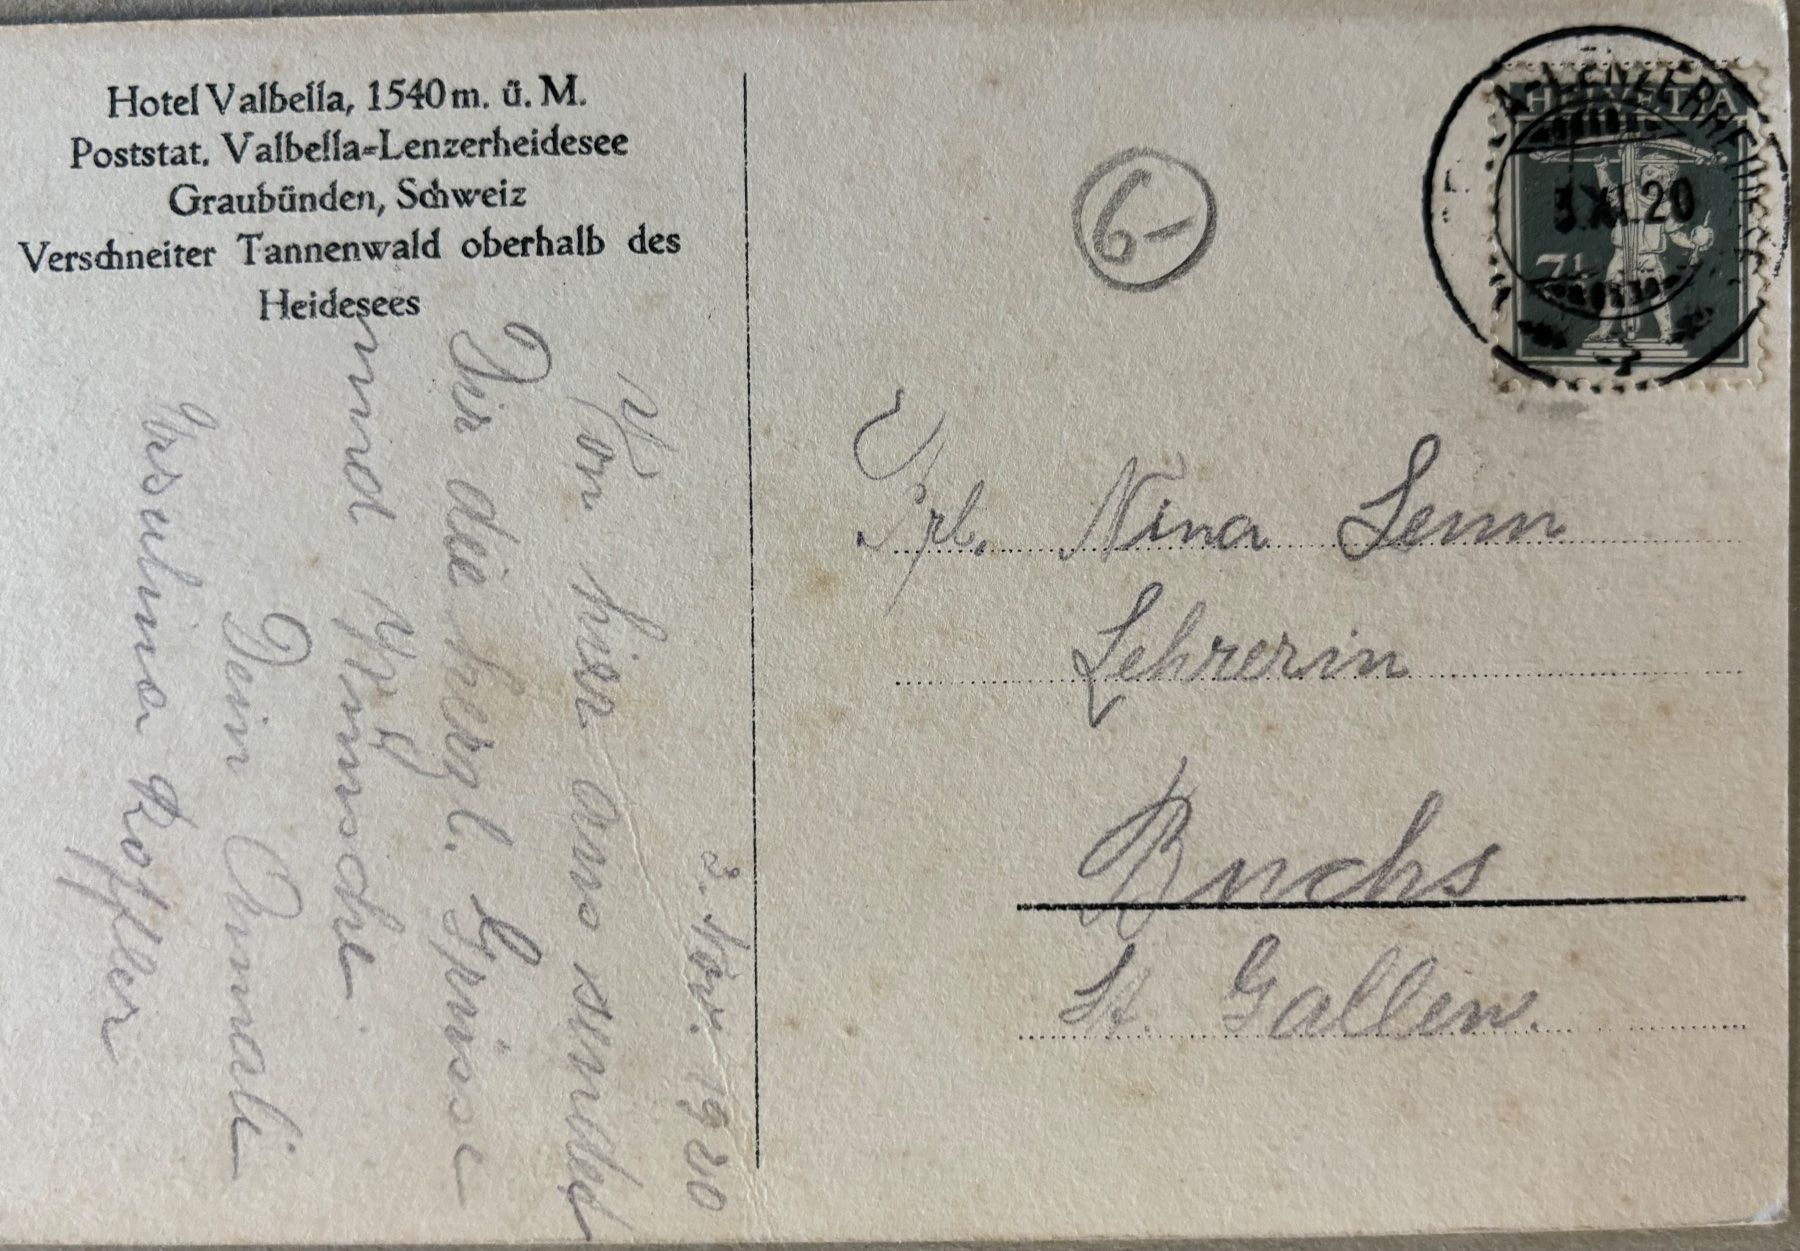 Hotel Valbella, 1540 m. ü. M.
Poststat. Valbella-Lenzerheidesee
Graubünden, Schweiz
Verschneiter Tannenwald oberhalb des
Heidesees
3. Nov. 1920
Von hier aus sendet
Dir die herzl. Grüsse
und Wünsche
Dein Ammali
Ursulina Koffler
HELVETIA
7½
LENZERHEIDE
3.XI.20
6-
Frl. Nina Senn
Lehrerin
Buchs
St. Gallen.